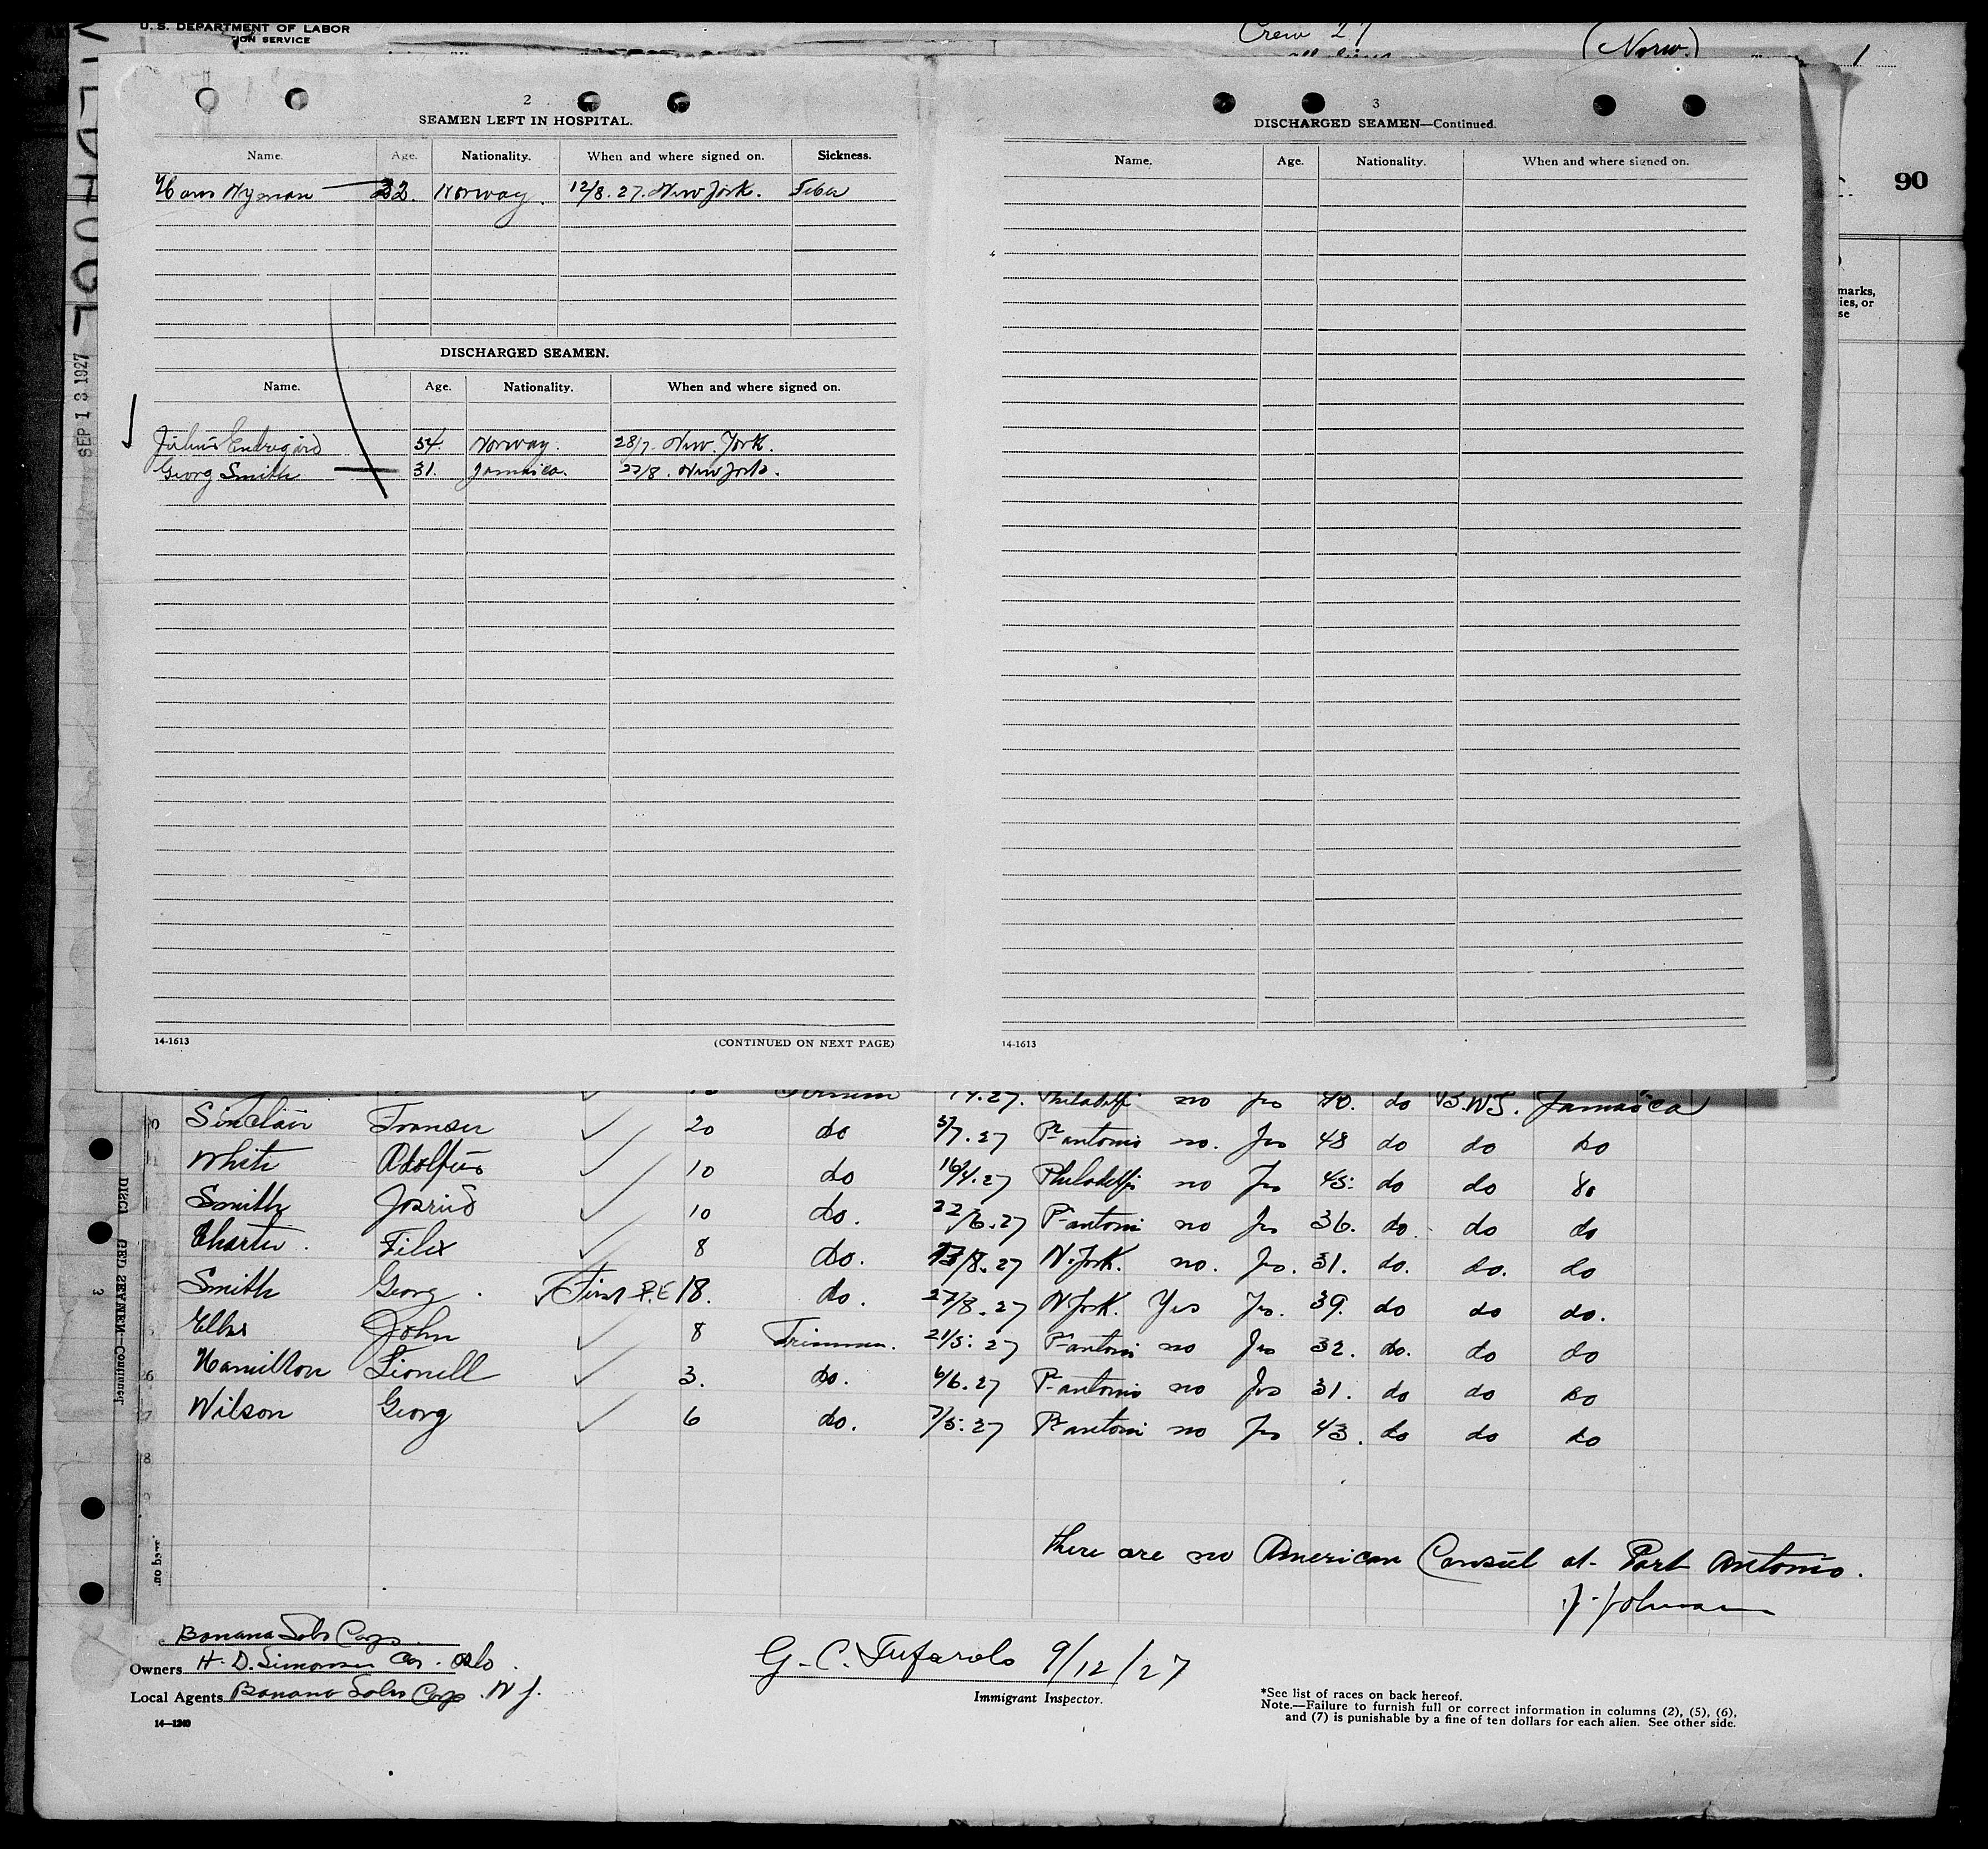 U.S. DEPARTMENT OF LABOR
ION SERVICE
Crew 27
(Norw.)
1
90
marks,
ies, or
se
SEP 13 1927
2
SEAMEN LEFT IN HOSPITAL.
Name. Age. Nationality. When and where signed on. Sickness.
Hans Nyman 22. Norway. 12/8.27. New York. Feber
DISCHARGED SEAMEN.
Name. Age. Nationality. When and where signed on.
54. Norway. 28/7. New York.
Georg Smith 31. Jamaica. 27/8. New York.
14-1613
(CONTINUED ON NEXT PAGE)
3
DISCHARGED SEAMEN—Continued.
Name. Age. Nationality. When and where signed on.
14-1613
14.27. Philadelfi no 40. do B.W.J. Jamaica
Sinclair 20 do 5/7.27 Pt antonio no. 48 do do do
White Adolfus 10 do 16/4.27 Philadelfi no 45. do do do
Smith 10 do. 22/6.27 Pt antoni no 36. do. do do
Charter. Filix 8 do. /8.27 N.York. no. 31. do. do. do
Smith Georg. First P.E 18. do. 27/8.27 N York. Yes 39. do do do.
Ellis John 8 Trimmer. 21/5.27 Pt antoni no 32. do. do do
26 Hamilton Lionell 3. do. 6/6.27 Pt antonio no 31. do do do
Wilson Georg 6 do. 7/5.27 Pt antoni no 43. do do do
there are no American Consul at Port Antonio.
DISCHARGED SEAMEN—Continued
3
Banana Sales Corp.
Owners H. D. Simonsen Oslo.
Local Agents Banana Sales Corp. N Y.
14—1240
G. C. Tufarolo 9/12/27
Immigrant Inspector.
*See list of races on back hereof.
Note.—Failure to furnish full or correct information in columns (2), (5), (6),
and (7) is punishable by a fine of ten dollars for each alien. See other side.